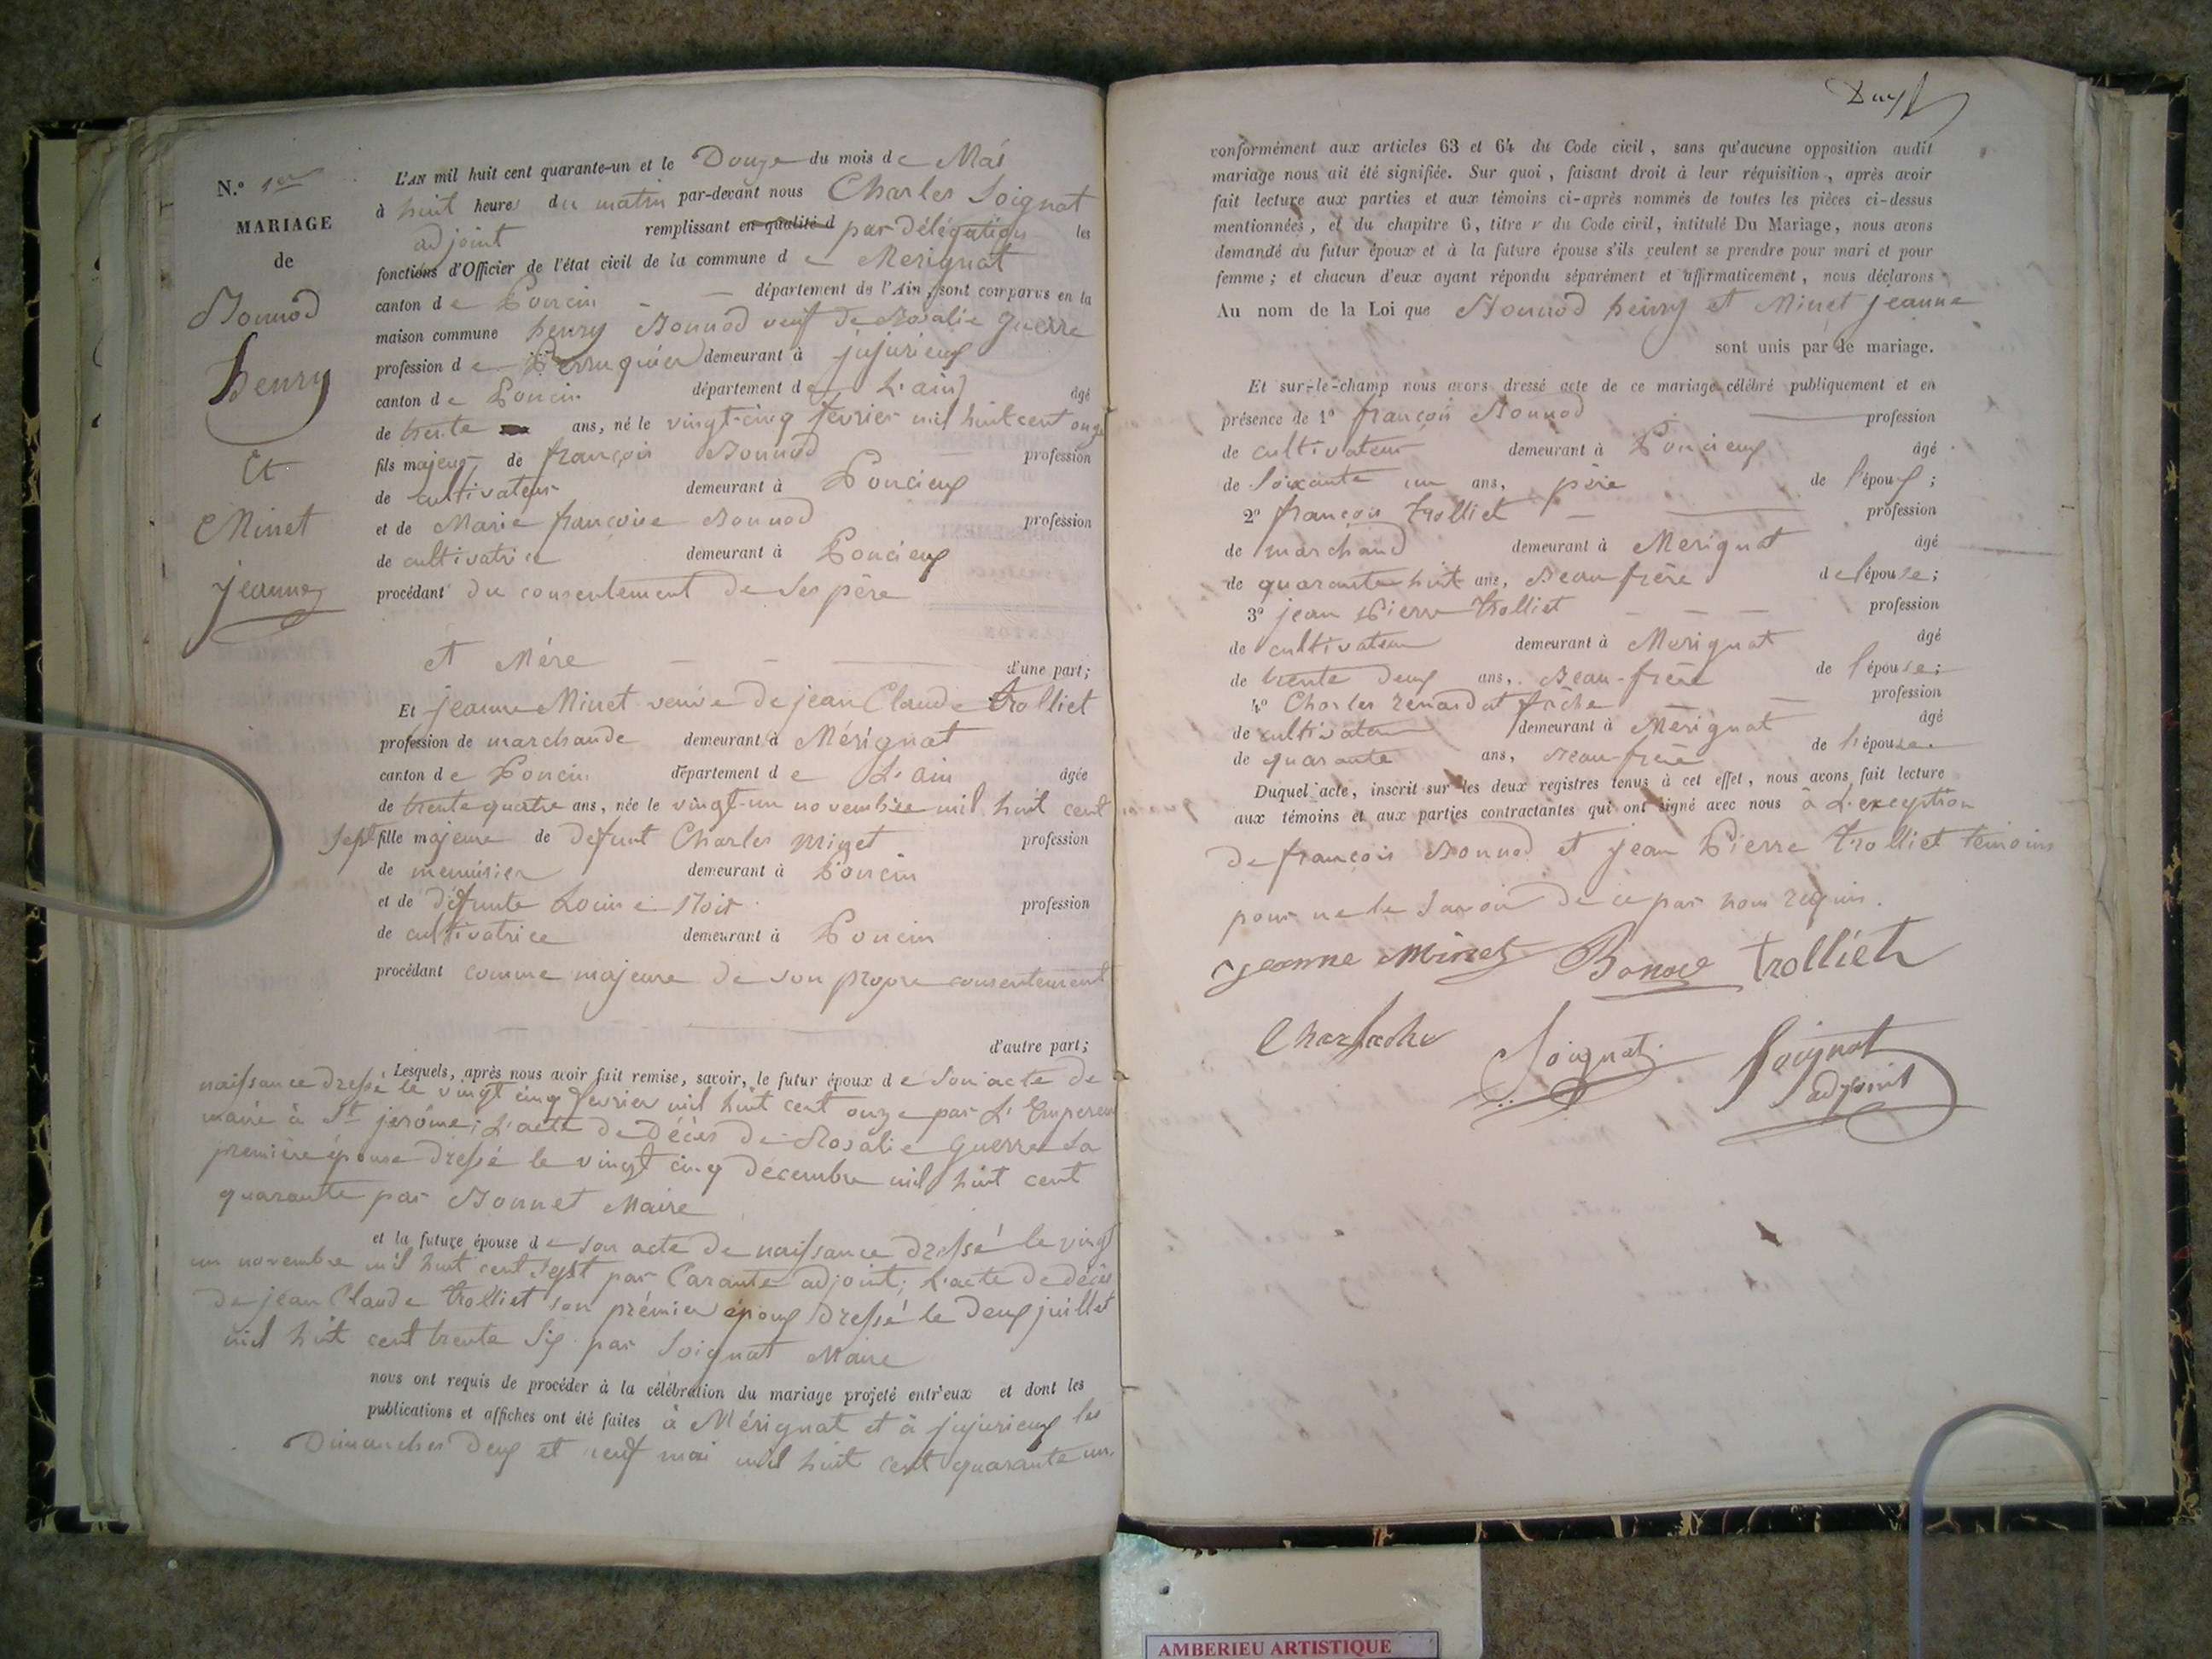 N.º 1er
MARIAGE
de
Bonnod
henry
Et
Minet
jeanne
L'AN mil huit cent quarante-un et le Douze du mois de Mai
à huit heures du matin par-devant nous Charles Soignat
adjoint remplissant en qualité d par délégation les
fonctions d'Officier de l'état civil de la commune de Merignat
canton de Poncin département de l'Ain, sont comparus en la
maison commune henry Bonnod veuf de Rosalie Guerre
profession de Perruquier demeurant à jujurieux
canton de Poncin département de L'ain âgé
de trente ans, né le vingt-cinq fevrier mil huit cent onze
fils majeur de françois Bonnod profession
de cultivateur demeurant à Poncieux
et de Marie françoise Bonnod profession
de cultivatrice demeurant à Poncieux
procédant du consentement de ses père
et Mére d'une part;
Et jeanne Minet veuve de jean Claude trolliet
profession de marchande demeurant à Mérignat
canton de Poncin département de L'ain âgée
de trente quatre ans, née le vingt-un novembre mil huit cent
sept fille majeure de defunt Charles Minet profession
de menuisier demeurant à Poncin
et de défunte Louise profession
de cultivatrice demeurant à Poncin
procédant comme majeure de son propre consentement
d'autre part;
Lesquels, après nous avoir fait remise, savoir, le futur époux de son acte de
naissance dressé le vingt cinq fevrier mil huit cent onze par L'Empereur
maire à St jerôme; L'acte de Décès de Rosalie Guerre sa
première épouse dressé le vingt cinq decembre mil huit cent
quarante par Bonnet Maire
et la future épouse de son acte de naissance dressé le vingt
un novembre mil huit cent sept par Carante adjoint; L'acte de décès
de jean Claude trolliet son prémier époux dressé le deux juillet
mil huit cent trente six par Soignat Maire
nous ont requis de procéder à la célébration du mariage projeté entr'eux et dont les
publications et affiches ont été faites à Mérignat et à jujurieux les
Dimanches deux et neuf mai mil huit cent quarante un.
conformément aux articles 63 et 64 du Code civil, sans qu'aucune opposition audit
mariage nous ait été signifiée. Sur quoi, faisant droit à leur réquisition, après avoir
fait lecture aux parties et aux témoins ci-après nommés de toutes les pièces ci-dessus
mentionnées, et du chapitre 6, titre v du Code civil, intitulé Du Mariage, nous avons
demandé au futur époux et à la future épouse s'ils veulent se prendre pour mari et pour
femme; et chacun d'eux ayant répondu séparément et affirmativement, nous déclarons
Au nom de la Loi que Bonnod henry et Minet jeanne
sont unis par le mariage.
Et sur-le-champ nous avons dressé acte de ce mariage célébré publiquement et en
présence de 1º françois Bonnod profession
de cultivateur demeurant à Poncieux âgé
de soixante un ans, père de l'époux;
2º françois trolliet profession
de marchand demeurant à Merignat âgé
de quarante huit ans, Beau frère de l'épouse;
3º jean Pierre trolliet profession
de cultivateur demeurant à Merignat âgé
de trente deux ans, Beau-frère de l'épouse;
4º Charles renardat fâche profession
de cultivateur demeurant à Mérignat âgé
de quarante ans, Beau-frère de l'épouse.
Duquel acte, inscrit sur les deux registres tenus à cet effet, nous avons fait lecture
aux témoins et aux parties contractantes qui ont signé avec nous à L'exception
de françois Bonnod et jean Pierre trolliet témoins
pour ne le savoir de ce par nous requis.
jeanne Minet Bonod trolliet
Soignat Soignat
adjoint
AMBERIEU ARTISTIQUE